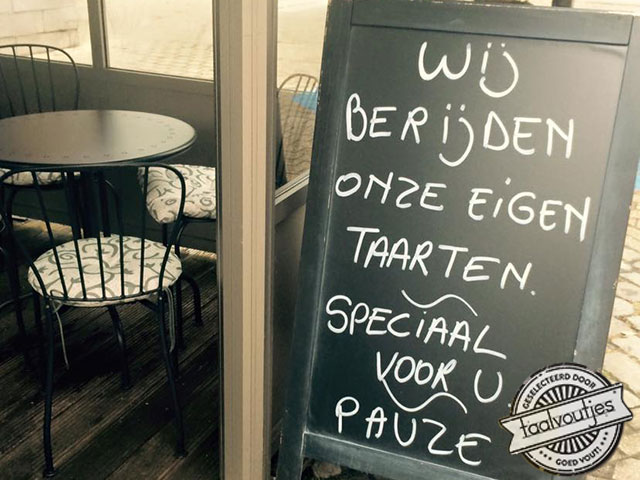 Wij
BERIJDEN
ONZE EIGEN
TAARTEN.
SPECIAAL
VOOR U
PAUZE
GESELECTEERD DOOR
taalvoutjes
GOED VOUT!